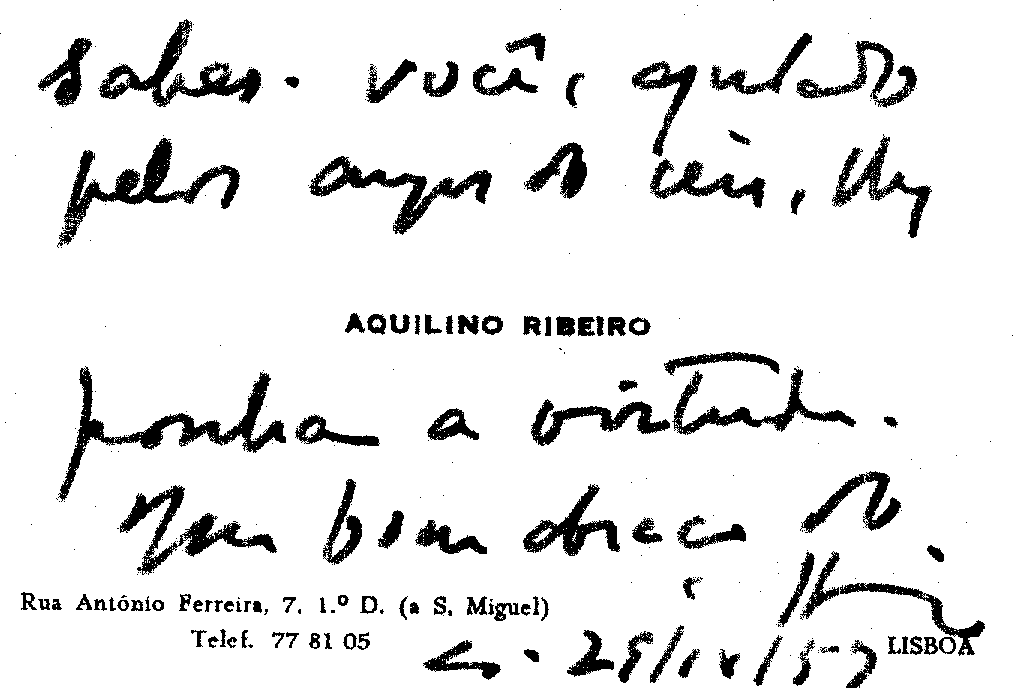 sabes. você, ajudado
pelos anjos do céu, lhe
AQUILINO RIBEIRO
ponha a virtude.
Um bom abraço do
Rua António Ferreira, 7, 1.º D. (a S. Miguel)
Telef. 77 81 05
LISBOA